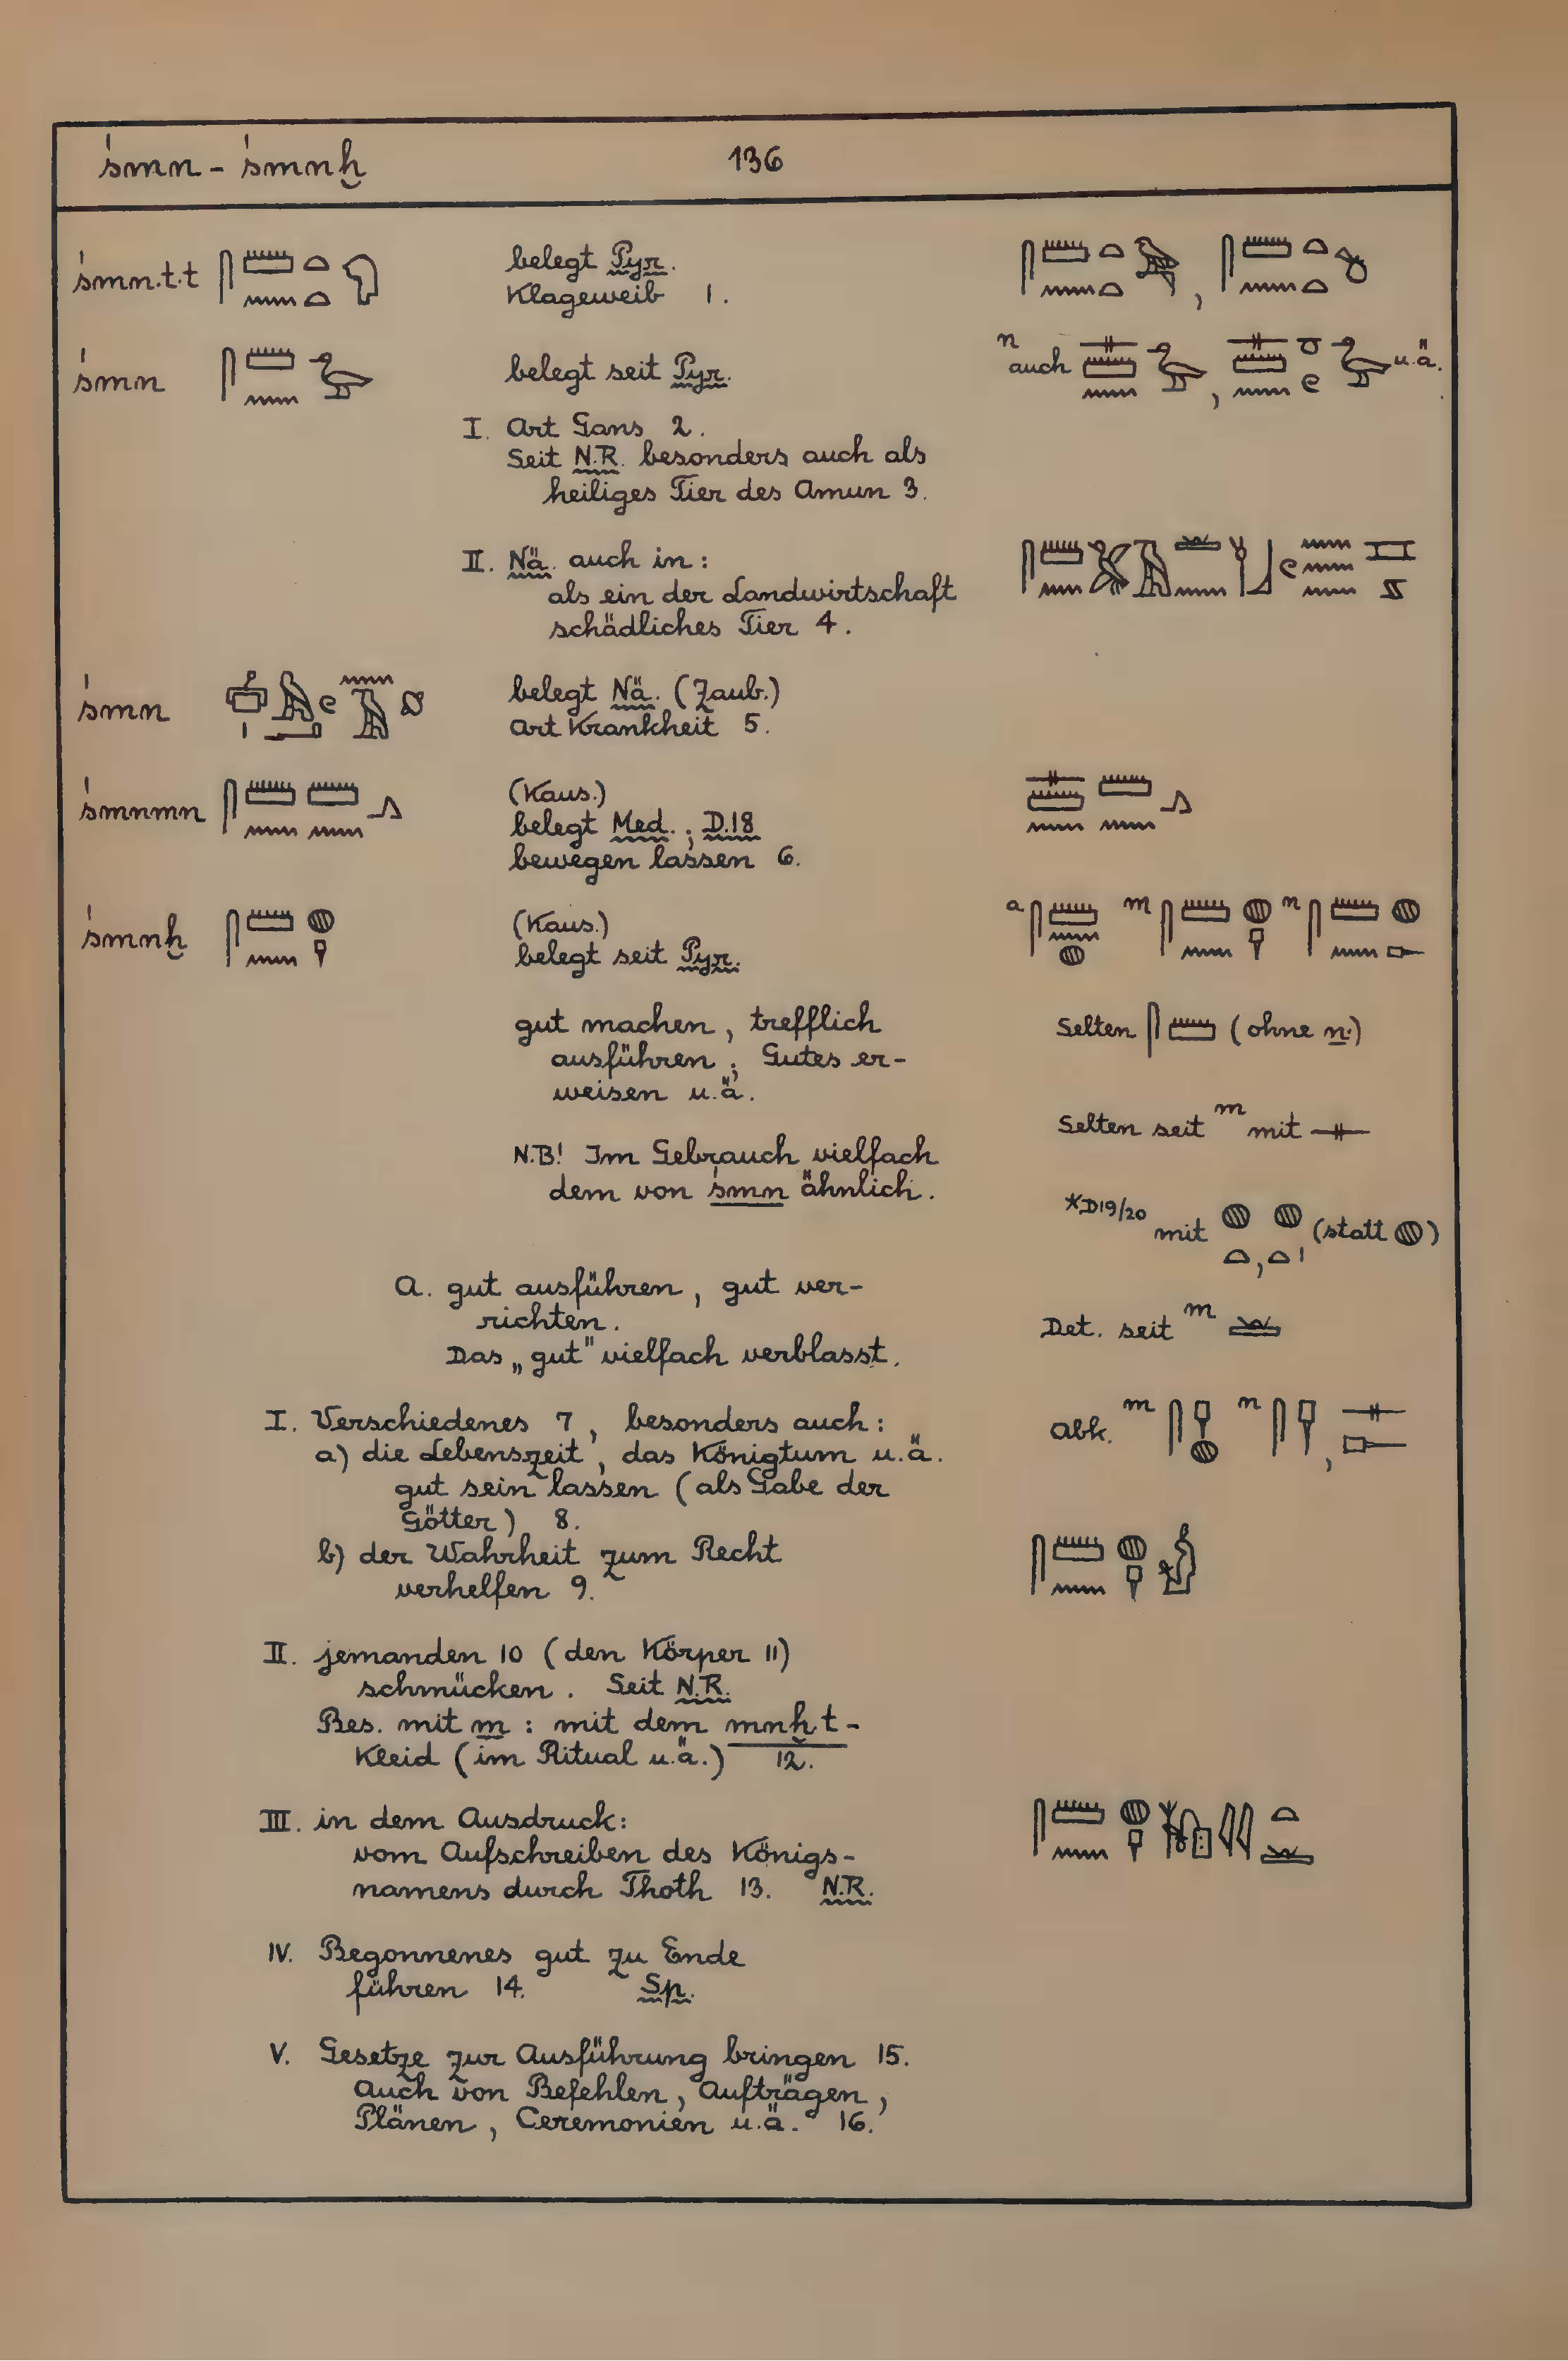 śmn - śmnḫ 136
śmn.t.t 𓋴𓏠𓈖𓏏𓏏𓁶 belegt Pyr.
Klageweib 1.
śmn 𓋴𓏠𓈖𓅬 belegt seit Pyr. n auch 𓊃𓏠𓈖𓅬, u.ä.
I. Art Gans 2.
Seit N.R. besonders auch als
heiliges Tier des Amun 3.
II. Nä. auch in:
als ein der Landwirtschaft
schädliches Tier 4.
śmn belegt Nä. (Zaub.)
Art Krankheit 5.
śmnmn 𓋴𓏠𓈖𓏠𓈖𓂻 (Kaus.) 𓊃𓏠𓈖𓏠𓈖𓂻
belegt Med.; D.18
bewegen lassen 6.
śmnḫ 𓋴𓏠𓈖𓐍𓍋 (Kaus.) a 𓋴𓏠𓈖𓐍 m 𓋴𓏠𓈖𓐍𓍋 n 𓋴𓏠𓈖𓐍𓍋
belegt seit Pyr.
gut machen, trefflich
ausführen; Gutes er-
weisen u.ä.
Selten 𓋴𓏠 (ohne n.)
Selten seit m mit 𓊃
N.B! Im Gebrauch vielfach
dem von śmn ähnlich.
*D19/20 mit 𓐍𓏏, 𓐍𓏏𓏤 (statt 𓐍)
A. gut ausführen, gut ver-
richten.
Das „gut" vielfach verblasst.
Det. seit m 𓏜
I. Verschiedenes 7, besonders auch:
a) die Lebenszeit, das Königtum u.ä.
gut sein lassen (als Gabe der
Götter) 8.
Abk. m 𓋴𓍋𓐍 n 𓋴𓍋, 𓊃𓍋
b) der Wahrheit zum Recht
verhelfen 9.
𓋴𓏠𓈖𓐍𓍋𓁦
II. jemanden 10 (den Körper 11)
schmücken. Seit N.R.
Bes. mit m : mit dem mnḫt-
Kleid (im Ritual u.ä.) 12.
III. in dem Ausdruck:
vom Aufschreiben des Königs-
namens durch Thoth 13. N.R.
IV. Begonnenes gut zu Ende
führen 14. Sp.
V. Gesetze zur Ausführung bringen 15.
Auch von Befehlen, Aufträgen,
Plänen, Ceremonien u.ä. 16.